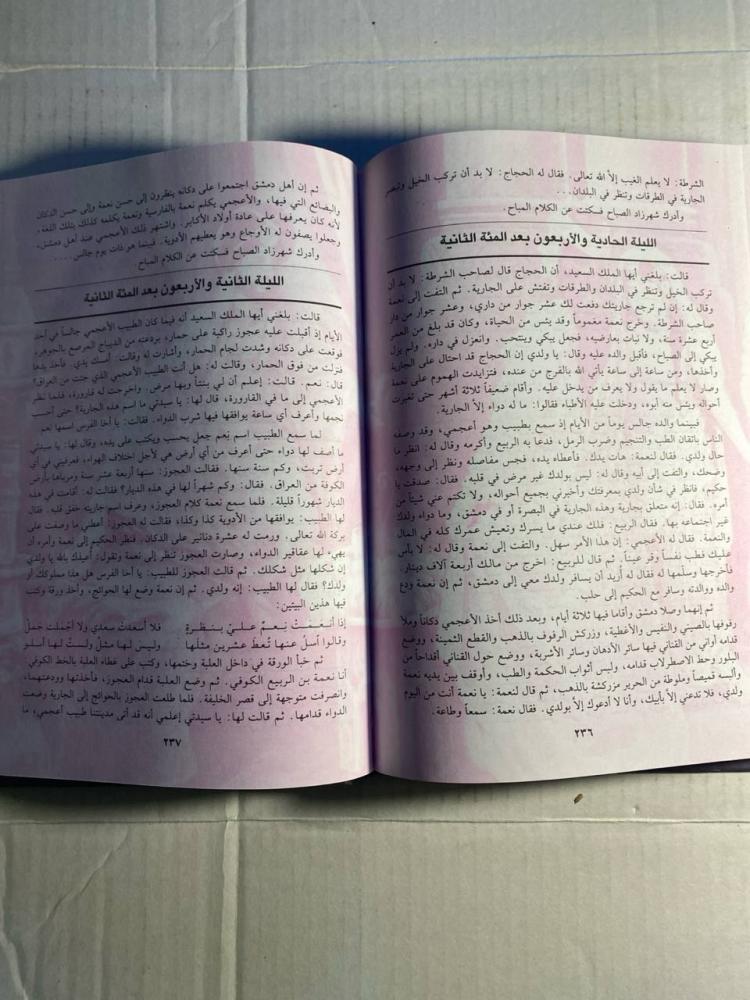 الشرطة: لا يعلم الغيب إلاَّ الله تعالى. فقال له الحجاج: لا بد أن تركب الخيل وتبصر
الجارية في الطرقات وتنظر في البلدان...
وأدرك شهرزاد الصباح فسكتت عن الكلام المباح.
الليلة الحادية والأربعون بعد المئة الثانية
قالت: بلغني أيها الملك السعيد، أن الحجاج قال لصاحب الشرطة: لا بد أن
تركب الخيل وتنظر في البلدان والطرقات وتفتش على الجارية. ثم التفت إلى نعمة
وقال له: إن لم ترجع جاريتك دفعت لك عشر جوار من داري، وعشر جوار من دار
صاحب الشرطة. وخرج نعمة مغموماً وقد يئس من الحياة، وكان قد بلغ من العمر
أربع عشرة سنة، ولا نبات بعارضيه، فجعل يبكي وينتحب. وانعزل في داره. ولم يزل
يبكي إلى الصباح، فأقبل والده عليه وقال: يا ولدي إن الحجاج قد احتال على الجارية
وأخذها، ومن ساعة إلى ساعة يأتي الله بالفرج من عنده، فتزايدت الهموم على نعمة
وصار لا يعلم ما يقول ولا يعرف من يدخل عليه. وأقام ضعيفاً ثلاثة أشهر حتى تغيرت
أحواله ويئس منه أبوه، ودخلت عليه الأطباء فقالوا: ما له دواء إلاَّ الجارية.
فبينما والده جالس يوماً من الأيام إذ سمع بطبيب وهو أعجمي، وقد وصفه
الناس باتقان الطب والتنجيم وضرب الرمل، فدعا به الربيع وأكرمه وقال له: انظر ما
حال ولدي. فقال لنعمة: هات يدك. فأعطاه يده، فجس مفاصله ونظر إلى وجهه،
وضحك، والتفت إلى أبيه وقال له: ليس بولدك غير مرض في قلبه. فقال: صدقت يا
حكيم، فانظر في شأن ولدي بمعرفتك وأخبرني بجميع أحواله، ولا تكتم عني شيئاً من
أمره. فقال: إنه متعلق بجارية وهذه الجارية في البصرة أو في دمشق، وما دواء ولدك
غير اجتماعه بها. فقال الربيع: فلك عندي ما يسرك وتعيش عمرك كله في المال
والنعمة. فقال له الأعجمي: إن هذا الأمر سهل. والتفت إلى نعمة وقال له: لا بأس
عليك فطب نفساً وقر عيناً. ثم قال للربيع: اخرج من مالك أربعة آلاف دينار
فأخرجها وسلّمها له فقال له أُريد أن يسافر ولدك معي إلى دمشق، ثم إن نعمة ودع
والده ووالدته وسافر مع الحكيم إلى حلب.
ثم إنهما وصلا دمشق وأقاما فيها ثلاثة أيام، وبعد ذلك أخذ الأعجمي دكاناً وملأ
رفوفها بالصيني والنفيس والأغطية، وزركش الرفوف بالذهب والقطع الثمينة، ووضع
قدامه أواني من القناني فيها سائر الأدهان وسائر الأشربة، ووضع حول القناني أقداحاً من
البلور وحط الاصطرلاب قدامه، ولبس أثواب الحكمة والطب، وأوقف بين يديه نعمة
وألبسه قميصاً وملوطة من الحرير مزركشة بالذهب، ثم قال لنعمة: يا نعمة أنت من اليوم
ولدي، فلا تدعني إلاَّ بأبيك، وأنا لا أدعوك إلاَّ بولدي. فقال نعمة: سمعاً وطاعة.
٢٣٦
ثم إن أهل دمشق اجتمعوا على دكانه ينظرون إلى حسن نعمة وإلى حسن الدكان
والبضائع التي فيها، والأعجمي يكلم نعمة بالفارسية ونعمة يكلمه كذلك بتلك اللغة،
لأنه كان يعرفها على عادة أولاد الأكابر. واشتهر ذلك الأعجمي عند أهل دمشق،
وجعلوا يصفون له الأوجاع وهو يعطيهم الأدوية. فبينما هو ذات يوم جالس....
وأدرك شهرزاد الصباح فسكتت عن الكلام المباح.
الليلة الثانية والأربعون بعد المئة الثانية
قالت: بلغني أيها الملك السعيد أنه فيما كان الطبيب الأعجمي جالساً في أحد
الأيام إذ أقبلت عليه عجوز راكبة على حمار، بردعته من الديباج المرصع بالجوهر،
فوقفت على دكانه وشدت لجام الحمار، وأشارت له وقالت: أمسك يدي. فأخذ يدها
فنزلت من فوق الحمار، وقالت له: هل أنت الطبيب الأعجمي الذي جئت من العراق؟
قال: نعم. قالت: إعلم أن لي بنتاً وبها مرض. وأخرجت له قارورة، فلما نظر
الأعجمي إلى ما في القارورة، قال لها: يا سيدتي ما اسم هذه الجارية؟ حتى أحسب
نجمها وأعرف أي ساعة يوافقها فيها شرب الدواء. فقالت: يا أخا الفرس اسمها نعم
لما سمع الطبيب اسم نِعم جعل يحسب ويكتب على يده، وقال لها: يا سيدتي
ما أصف لها دواء حتى أعرف من أي أرض هي لأجل اختلاف الهواء، فعرفيني في أي
أرض تربت، وكم سنة سنها. فقالت العجوز: سنها أربعة عشر سنة ومرباها بأرض
الكوفة من العراق. فقال: وكم شهراً لها في هذه الديار؟ فقالت له: أقامت في هذه
الديار شهوراً قليلة. فلما سمع نعمة كلام العجوز، وعرف اسم جاريته خفق قلبه. فقال
لها الطبيب: يوافقها من الأدوية كذا وكذا، فقالت له العجوز: أعطني ما وصفت على
بركة الله تعالى. ورمت له عشرة دنانير على الدكان. فنظر الحكيم إلى نعمة وأمره أن
يهيء لها عقاقير الدواء، وصارت العجوز تنظر إلى نعمة وتقول: أعيذك بالله يا ولدي
إن شكلها مثل شكلك. ثم قالت العجوز للطبيب: يا أخا الفرس هل هذا مملوكك أو
ولدك؟ فقال لها الطبيب: إنه ولدي. ثم إن نعمة وضع لها الحوائج، وأخذ ورقة وكتب
فيها هذين البيتين:
إذا أنعَمَتْ نِعَمٌ عليَّ بنظرةٍ فلا أسعدتْ سعدي ولا أجملت جملُ
وقالوا أسلُ عنها تُعطَ عشرين مثلَها وليس لها مثلٌ ولستُ لها أسلو
ثم خبأ الورقة في داخل العلبة وختمها، وكتب على غطاء العلبة بالخط الكوفي
أنا نعمة بن الربيع الكوفي. ثم وضع العلبة قدام العجوز، فأخذتها وودعتهما،
وانصرفت متوجهة إلى قصر الخليفة. فلما طلعت العجوز بالحوائج إلى الجارية وضعت
الدواء قدامها. ثم قالت لها: يا سيدتي إعلمي أنه قد أتى مدينتنا طبيب أعجمي، ما
٢٣٧